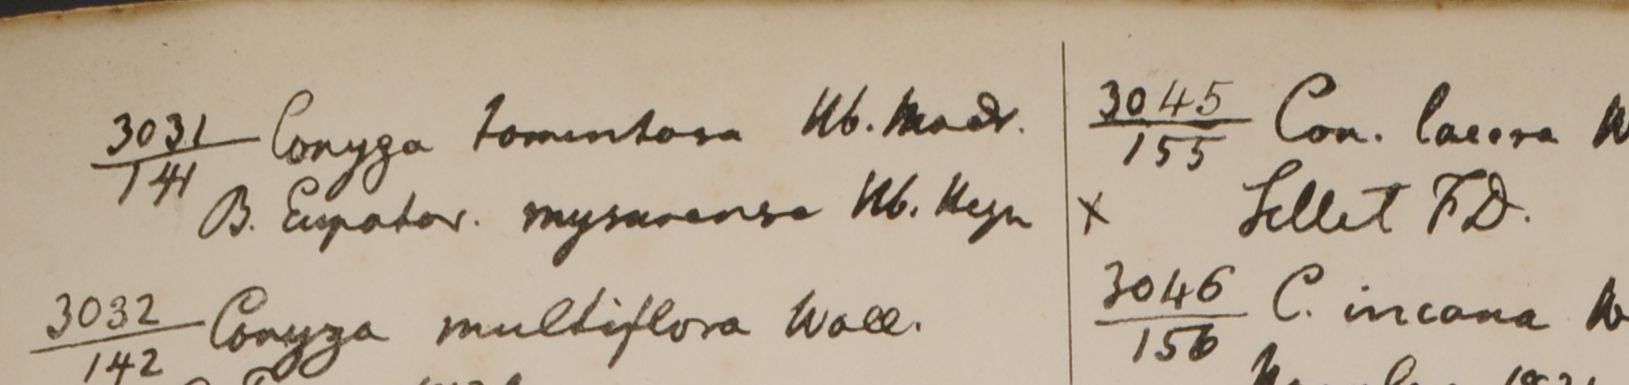 3031/141 Conyza tomentosa Hb. Madr.
B. Eupator. mysurense Hb. Heyn
3032/142 Conyza multiflora Wall.
3045/155 Con. lacera W
x Sillet F.D.
3046/156 C. incana W